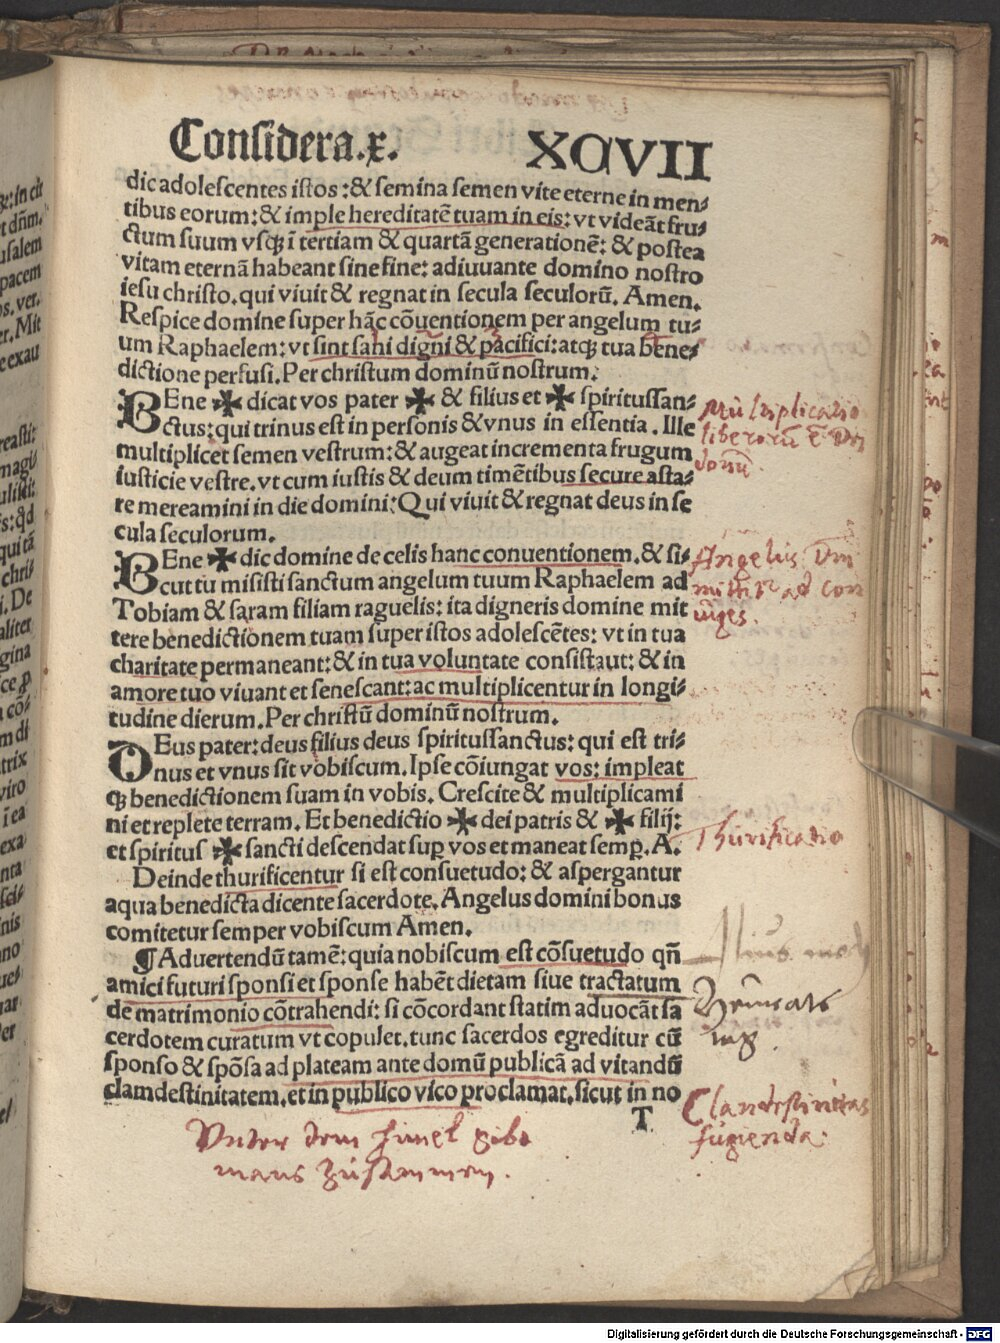 Considera.x. XCVII
dic adolescentes istos: & semina semen vite eterne in men⸗
tibus eorum: & imple hereditatē tuam in eis: vt videāt fru⸗
ctum suum vsqꝫ ī tertiam & quartā generationē: & postea
vitam eternā habeant sine fine: adiuuante domino nostro
iesu christo. qui viuit & regnat in secula seculorū. Amen.
Respice domine super hāc cōuentionem per angelum tu⸗
um Raphaelem: vt sint sani digni & pacifici: atqꝫ tua bene⸗
dictione perfusi. Per christum dominū nostrum.
BEne ✠ dicat vos pater ✠ & filius et ✠ spiritussan⸗
ctus: qui trinus est in personis & vnus in essentia. Ille
multiplicet semen vestrum: & augeat incrementa frugum
iusticie vestre. vt cum iustis & deum timētibus secure asta⸗
re mereamini in die domini: Qui viuit & regnat deus in se
cula seculorum.
BEne ✠ dic domine de celis hanc conuentionem. & si⸗
cut tu misisti sanctum angelum tuum Raphaelem ad
Tobiam & saram filiam raguelis: ita digneris domine mit
tere benedictionem tuam super istos adolescētes: vt in tua
charitate permaneant: & in tua voluntate consistaut: & in
amore tuo viuant et senescant: ac multiplicentur in longi⸗
tudine dierum. Per christū dominū nostrum.
DEus pater: deus filius deus spiritussanctus: qui est tri⸗
nus et vnus sit vobiscum. Ipse cōiungat vos: impleat
qꝫ benedictionem suam in vobis. Crescite & multiplicami
ni et replete terram. Et benedictio ✠ dei patris & ✠ filij:
et spiritus ✠ sancti descendat sup̱ vos et maneat semp̱. A.
Deinde thurificentur si est consuetudo: & aspergantur
aqua benedicta dicente sacerdote. Angelus domini bonus
comitetur semper vobiscum Amen.
¶ Aduertendū tamē: quia nobiscum est cōsuetudo qn̄
amici futuri sponsi et sponse habēt dietam siue tractatum
de matrimonio cōtrahendi: si cōcordant statim aduocāt sa
cerdotem curatum vt copulet. tunc sacerdos egreditur cū
sponso & spōsa ad plateam ante domū publicā ad vitandū
clamdestinitatem. et in publico vico proclamat. sicut in no
T
Multiplicatio
liberorū
donū
Angelus
mittitur ad con
iuges.
Thurificatio
Clandestinitas
fugienda.
Vnter dem himel gibt
mans zusammen.
Digitalisierung gefördert durch die Deutsche Forschungsgemeinschaft - DFG